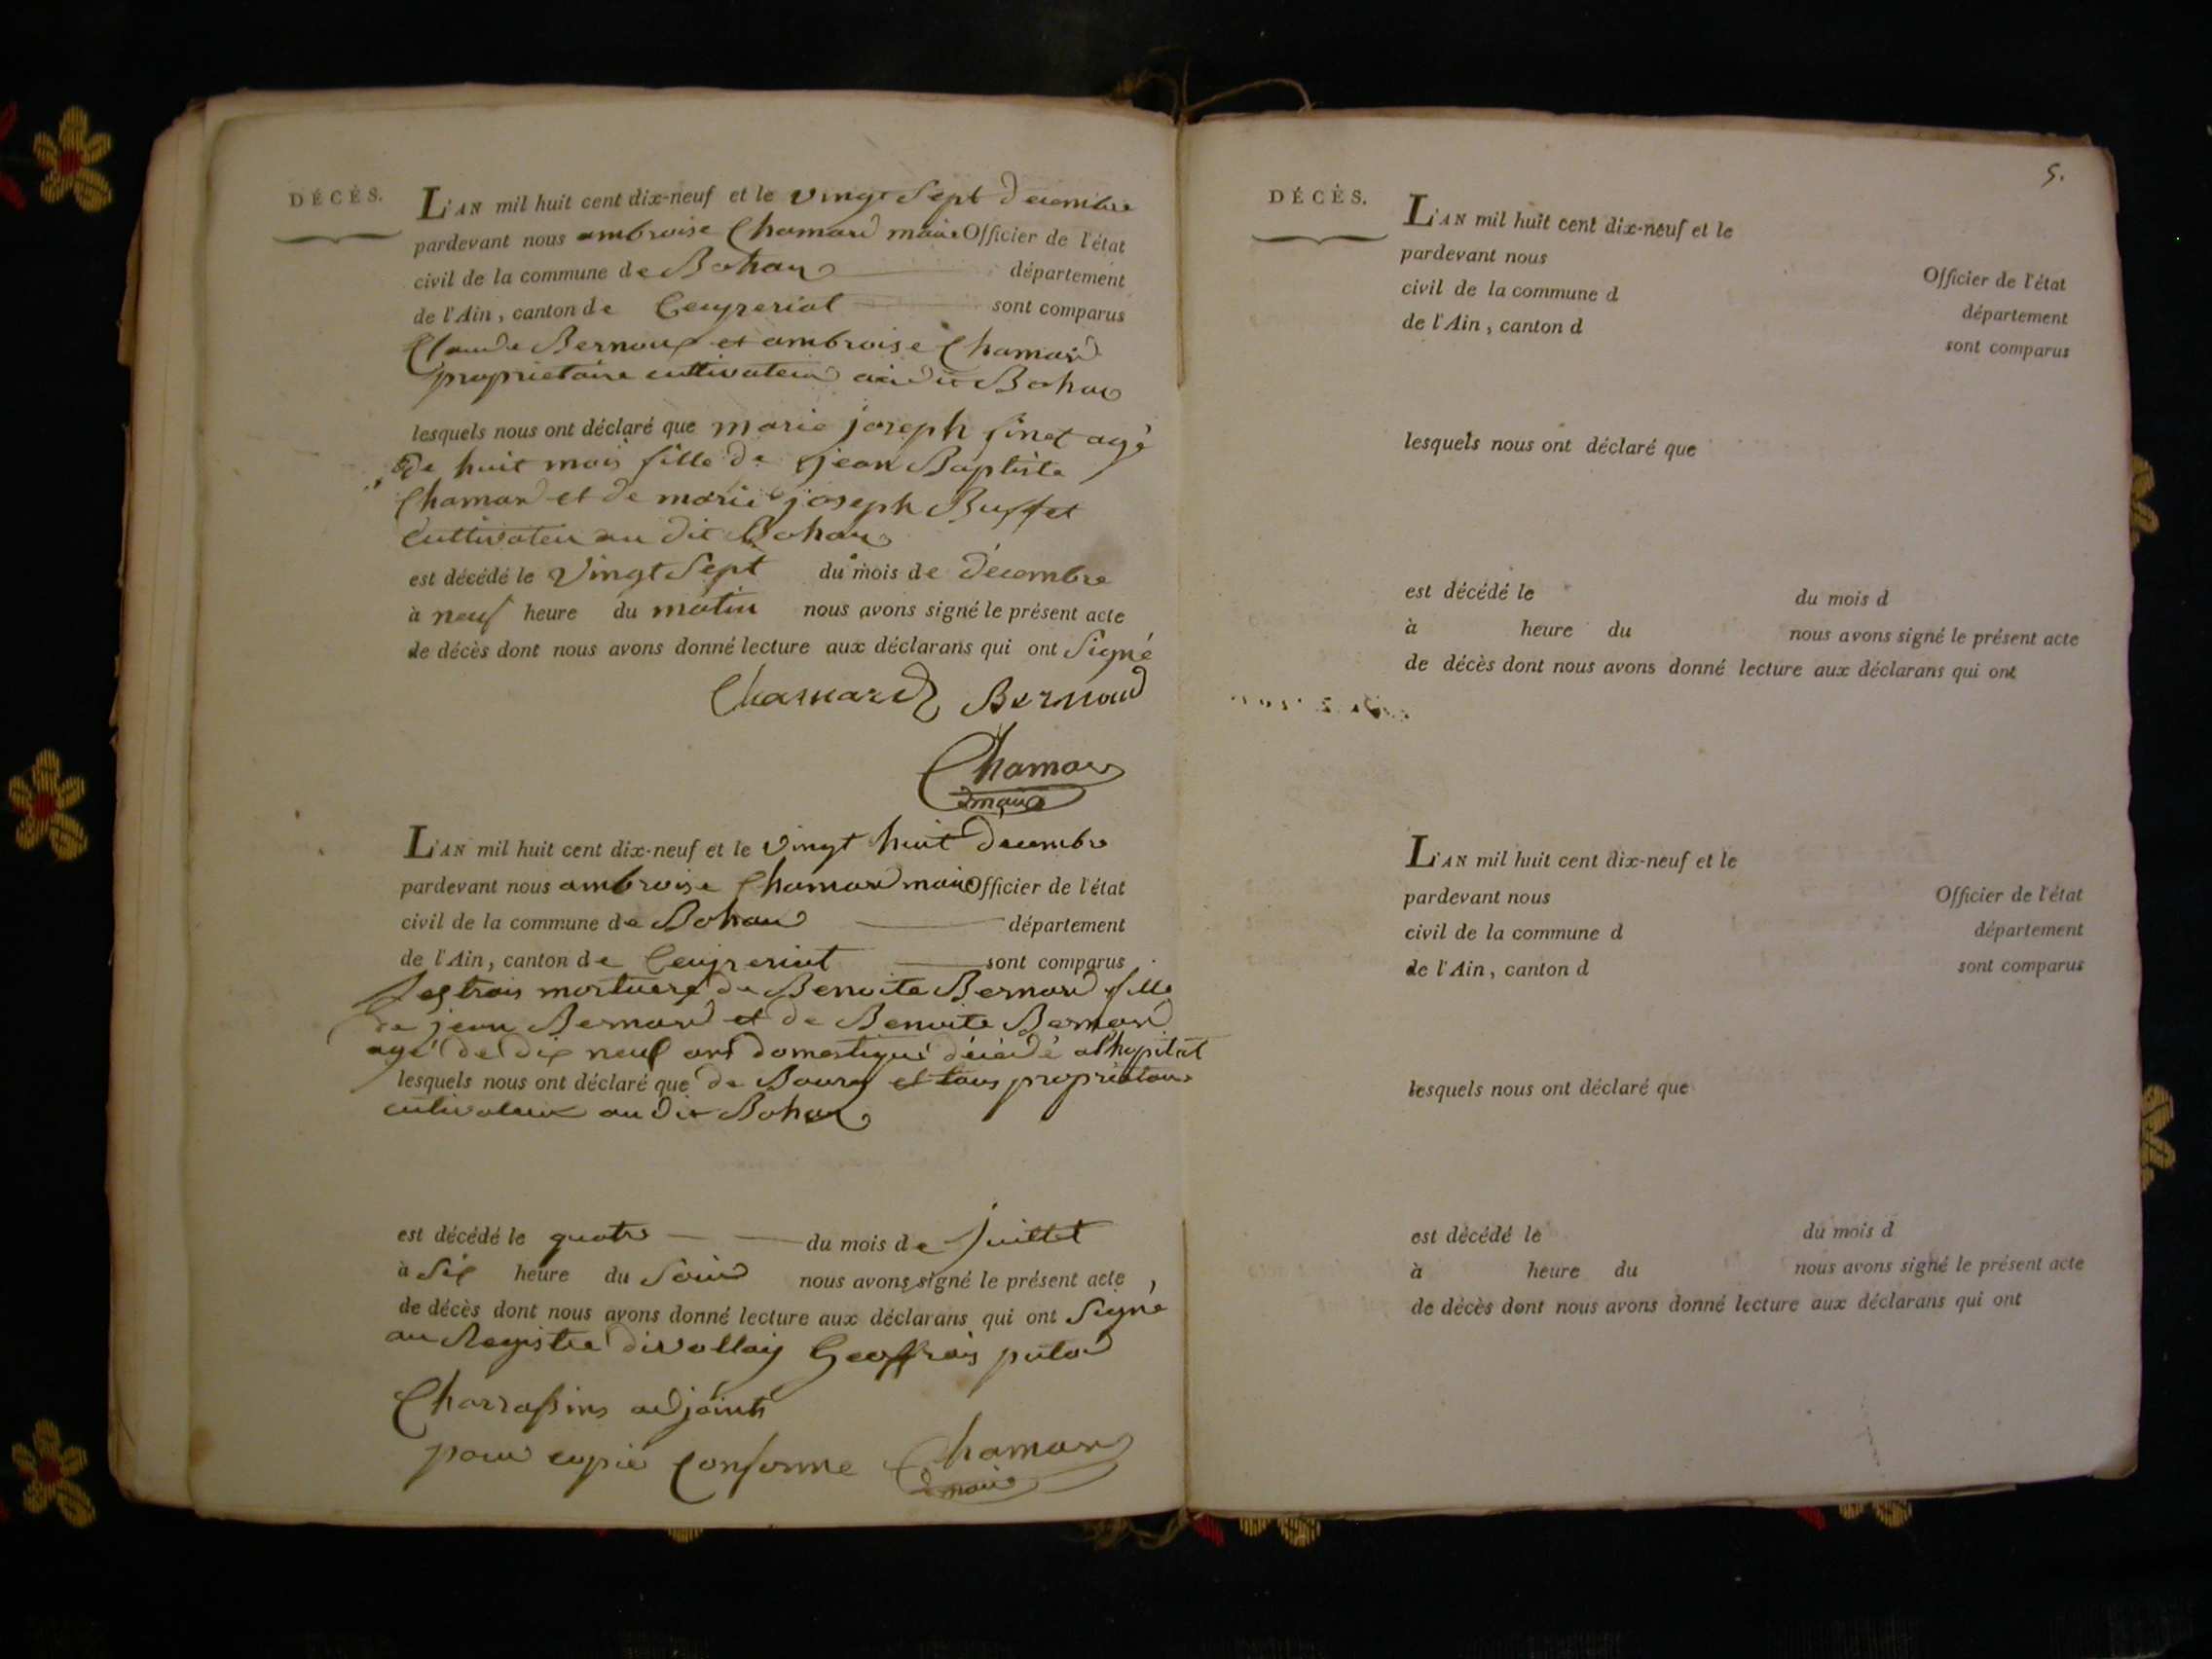 DÉCÈS.
L'AN mil huit cent dix-neuf et le vingt Sept Decembre
pardevant nous ambroise Chamard maire Officier de l'état
civil de la commune de Bohan département
de l'Ain, canton de Ceyzeriat sont comparus
Claude Bernoud et ambroise Chamard
proprietaire cultivateur audit Bohan
lesquels nous ont déclaré que marie joseph finet agé
de huit mois fille de jean Baptiste
Chamard et de marie joseph Buffet
Cultivateu au dit Bohan
est décédé le Vingt Sept du mois de décembre
à neuf heure du matin nous avons signé le présent acte
de décès dont nous avons donné lecture aux déclarans qui ont Signé
Chamard Bernoud
Chamard
maire
L'AN mil huit cent dix-neuf et le vingt huit décembre
pardevant nous ambroise Chamard maire Officier de l'état
civil de la commune de Bohan département
de l'Ain, canton de Ceyzeriat sont comparus
mortuere de Benoite Bernard fille
de jean Bernard et de Benoite Bernard
agé de dix neuf ans domestique décédé a l'hopital
lesquels nous ont déclaré que de Bourg et tous proprietaire
cultivateur au dit Bohan
est décédé le quatre du mois de Juillet
à Six heure du Soir nous avons signé le présent acte,
de décès dont nous avons donné lecture aux déclarans qui ont Signé
au Registre Geoffrois
Charrassins adjoint
pour copie Conforme Chamard
maire
5.
DÉCÈS.
L'AN mil huit cent dix-neuf et le
pardevant nous Officier de l'état
civil de la commune d département
de l'Ain, canton d sont comparus
lesquels nous ont déclaré que
est décédé le du mois d
à heure du nous avons signé le présent acte
de décès dont nous avons donné lecture aux déclarans qui ont
L'AN mil huit cent dix-neuf et le
pardevant nous Officier de l'état
civil de la commune d département
de l'Ain, canton d sont comparus
lesquels nous ont déclaré que
est décédé le du mois d
à heure du nous avons signé le présent acte
de décès dont nous avons donné lecture aux déclarans qui ont